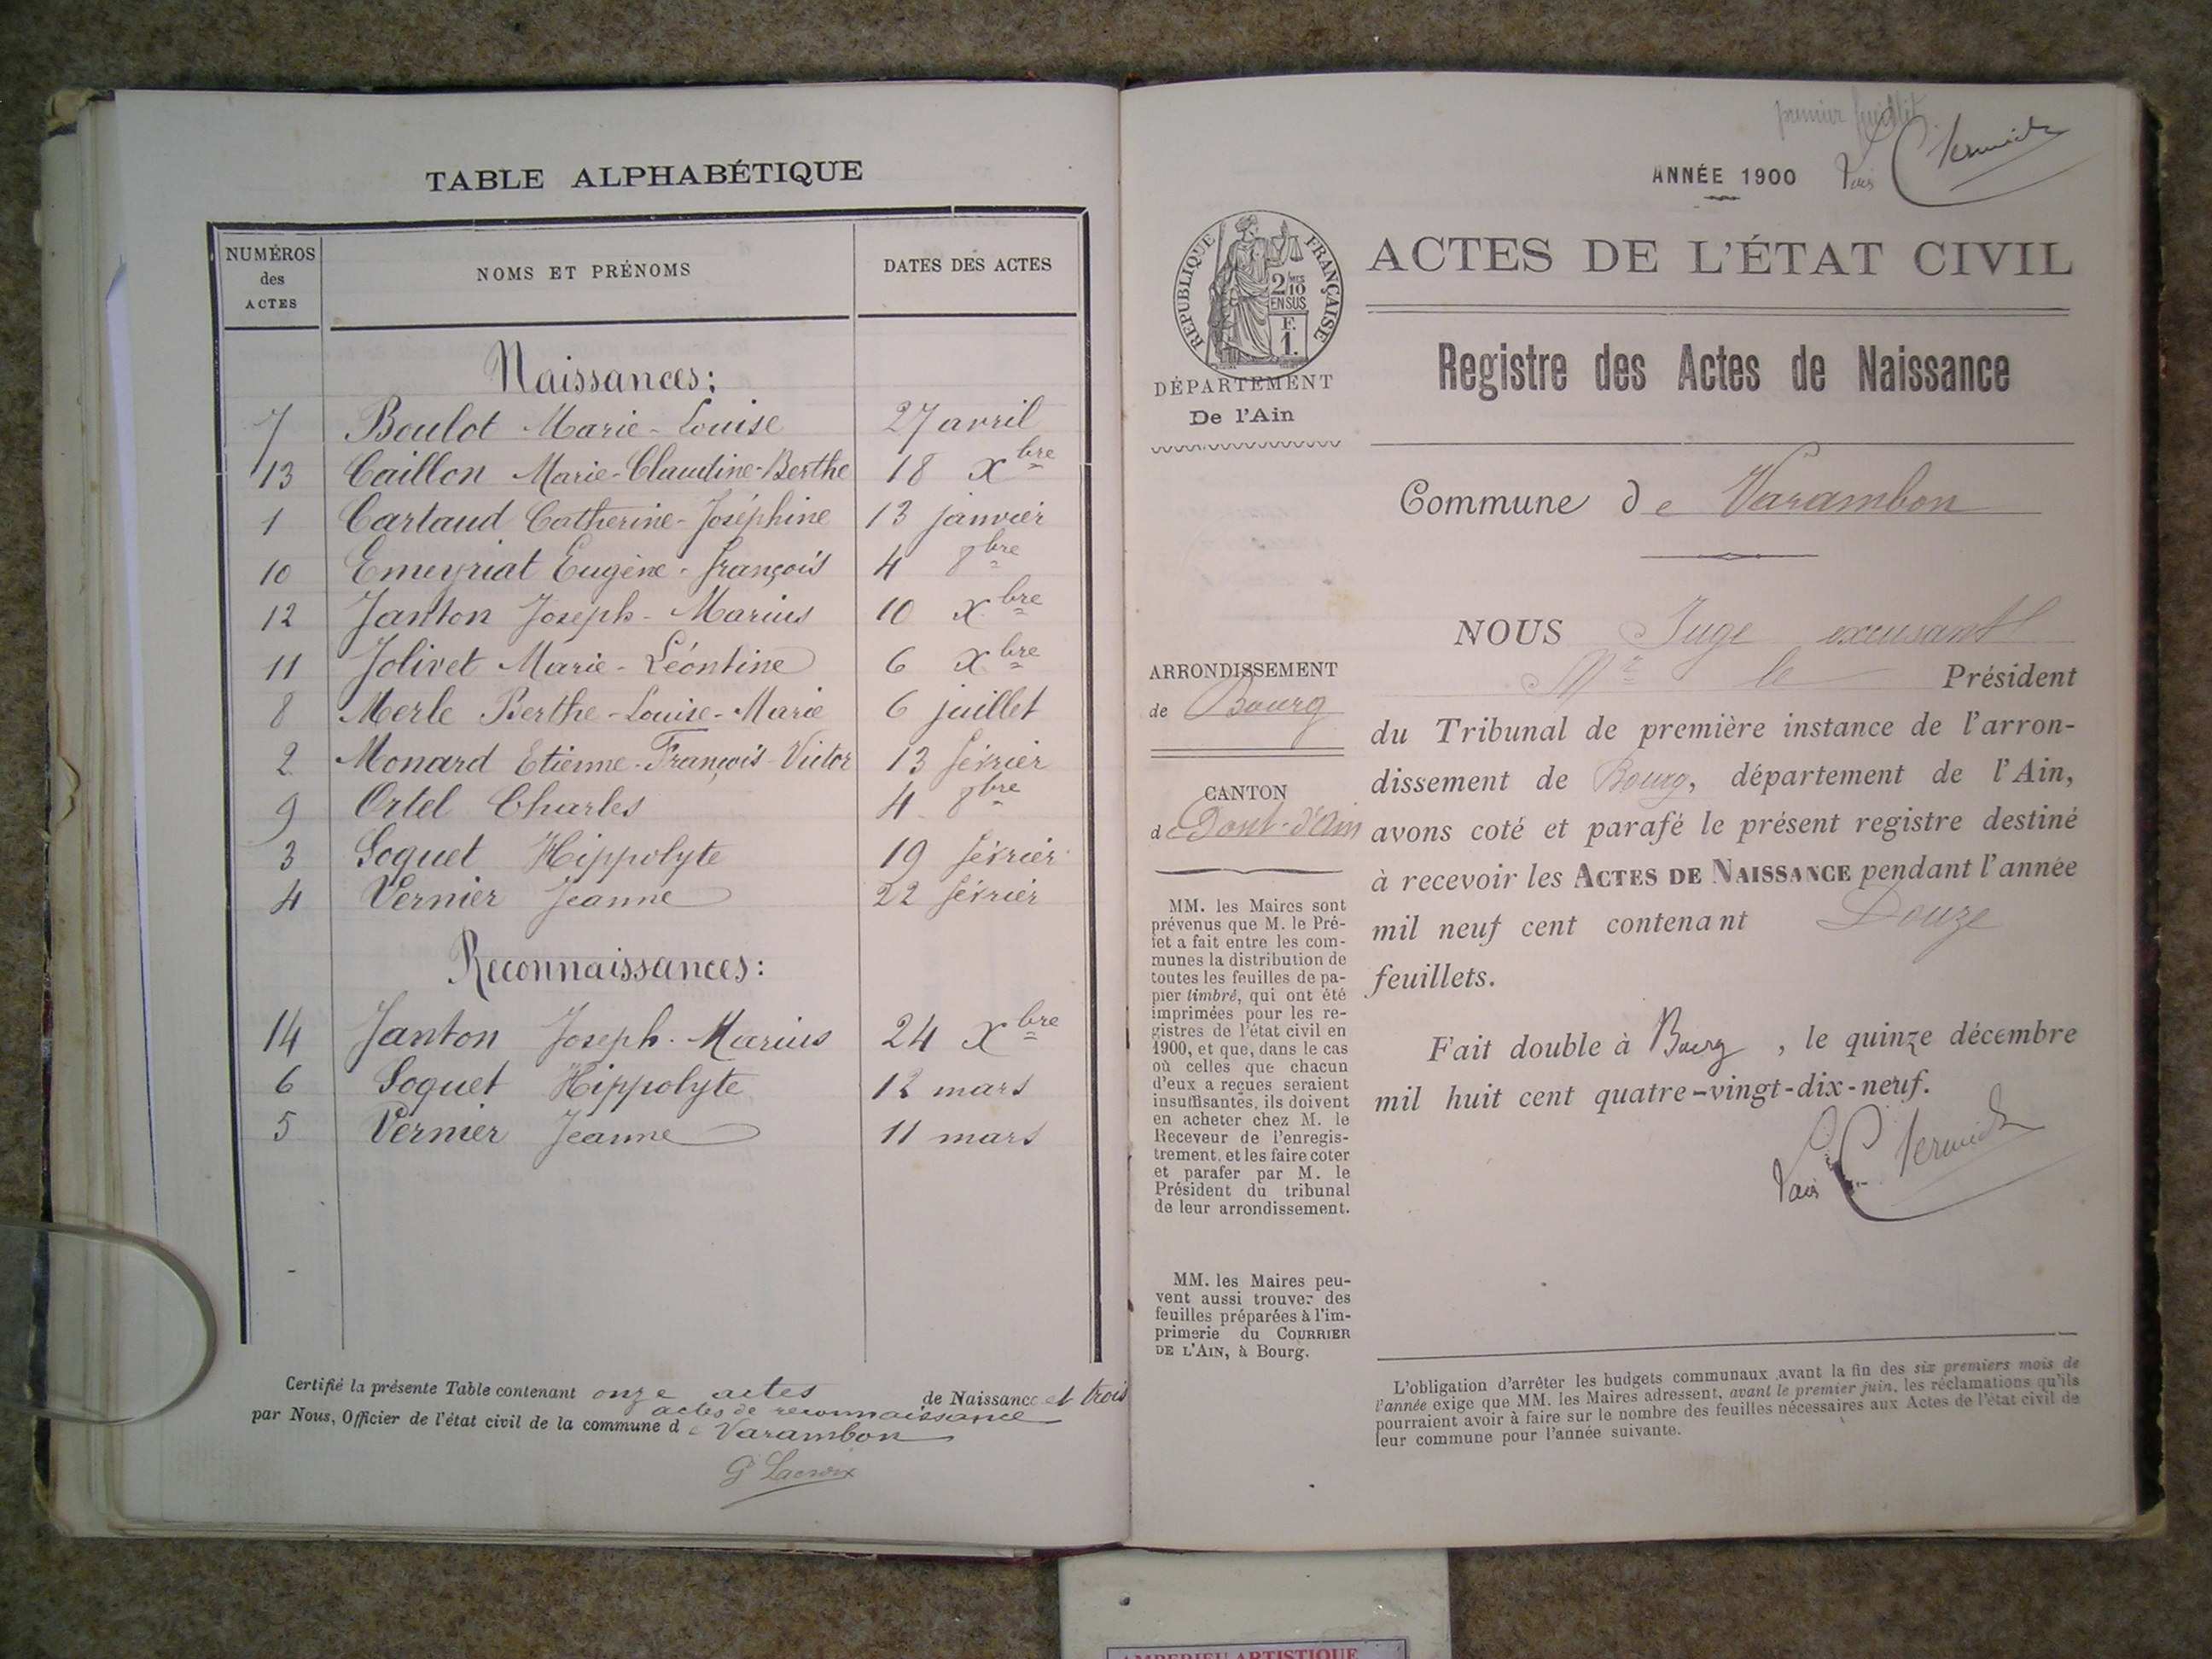 TABLE ALPHABÉTIQUE
NUMÉROS des ACTES NOMS ET PRÉNOMS DATES DES ACTES
Naissances:
7 Boulot Marie-Louise 27 avril
13 Caillon Marie-Claudine-Berthe 18 Xbre
1 Cartaud Catherine-Joséphine 13 janvier
10 Emeyriat Eugène-François 4 8bre
12 Janton Joseph-Marius 10 Xbre
11 Jolivet Marie-Léontine 6 Xbre
8 Merle Berthe-Louise-Marie 6 juillet
2 Monard Etienne-François-Victor 13 février
9 Ortel Charles 4 8bre
3 Soquet Hippolyte 19 février
4 Vernier Jeanne 22 février
Reconnaissances:
14 Janton Joseph-Marius 24 Xbre
6 Soquet Hippolyte 12 mars
5 Vernier Jeanne 11 mars
Certifié la présente Table contenant onze actes de Naissance et trois
actes de reconnaissance
par Nous, Officier de l'état civil de la commune de Varambon
G Lacroix
premier feuillet
ANNÉE 1900
RÉPUBLIQUE FRANÇAISE
2/10
EN SUS
F.
1.
ACTES DE L'ÉTAT CIVIL
Registre des Actes de Naissance
DÉPARTEMENT
De l'Ain
Commune de Varambon
ARRONDISSEMENT
de Bourg
CANTON
d Pont-d'Ain
MM. les Maires sont
prévenus que M. le Pré-
fet a fait entre les com-
munes la distribution de
toutes les feuilles de pa-
pier timbré, qui ont été
imprimées pour les re-
gistres de l'état civil en
1900, et que, dans le cas
où celles que chacun
d'eux a reçues seraient
insuffisantes, ils doivent
en acheter chez M. le
Receveur de l'enregis-
trement, et les faire coter
et parafer par M. le
Président du tribunal
de leur arrondissement.
MM. les Maires peu-
vent aussi trouver des
feuilles préparées à l'im-
primerie du COURRIER
DE L'AIN, à Bourg.
NOUS Juge excusant
Mr le Président
du Tribunal de première instance de l'arron-
dissement de Bourg, département de l'Ain,
avons coté et parafé le présent registre destiné
à recevoir les ACTES DE NAISSANCE pendant l'année
mil neuf cent contenant Douze
feuillets.
Fait double à Bourg, le quinze décembre
mil huit cent quatre-vingt-dix-neuf.
L'obligation d'arrêter les budgets communaux avant la fin des six premiers mois de
l'année exige que MM. les Maires adressent, avant le premier juin, les réclamations qu'ils
pourraient avoir à faire sur le nombre des feuilles nécessaires aux Actes de l'état civil de
leur commune pour l'année suivante.
AMBERIEU ARTISTIQUE